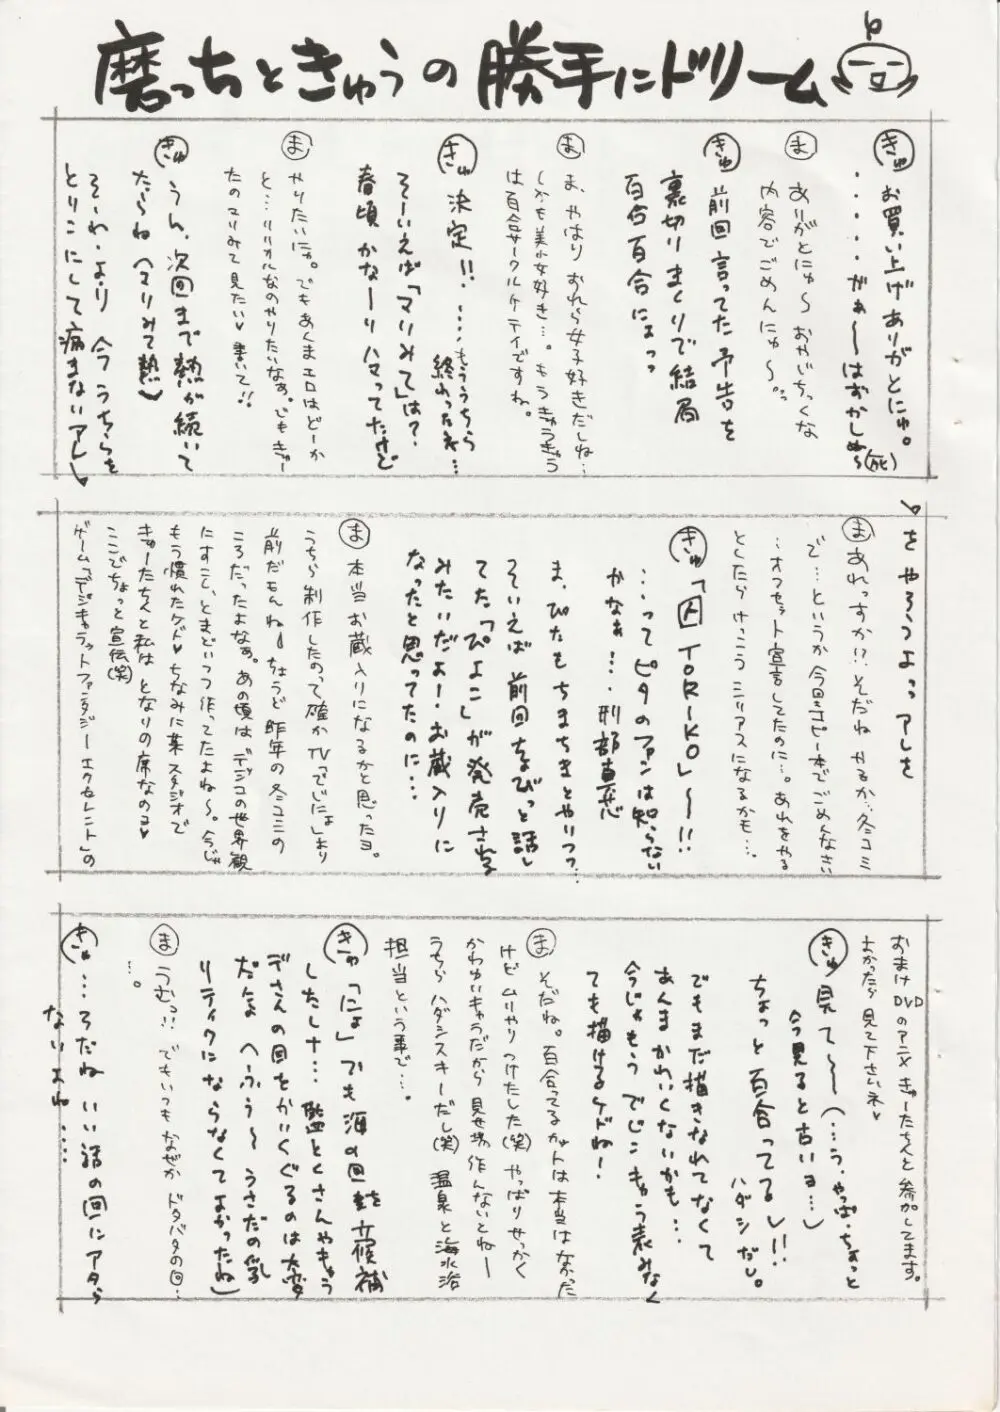 磨っちときゅうの勝手にドリーム
きゅ お買い上げありがとにゅ。
・・・・がぁ〜〜はずかしめ〜(死)
ま ありがとにゅ〜 おやじちっくな
内容でごめんにゅ〜。
きゅ 前回言ってた予告を
裏切りまくりで結局
百合百合によっっ
ま ま、やはり おれら女子好きだしね…
しかも美少女好き…。もうきゅうきゅう
は百合サークルケテイですね。
きゅ 決定!! ‥‥もううちら
終わったネ…
そーいえば「マリみて」は?
春頃かなーりハマってたけど
ま やりたいにゅ。でもあくまエロはどーか
と…リリカルなのやりたいなぁ。でもきゅー
たのマリみて見たい♥書いて!!
きゅ うん、次回まで熱が続いて
たらね(マリみて熱)
そーれ・より 今うちらを
とりこにして痛まないアレ
をやろうよっっアレを
ま あれっすか!?そだね やるか…冬コミ
で…というか今回コピー本でごめんなさい
…オフセット宣言してたのに…。あれをやる
としたらけっこうシリアスになるかも…。
きゅ 「囚 TORIKO」〜〜!!
…ってピタのファンは知らない
かなぁ…刑部真芯
ま、ぴたもちまちまとやりつつ…
そいえば前回ちょびっと話し
てた「ぴよこ」が発売される
みたいだよー・お蔵入りに
なったと思ってたのに…
ま 本当お蔵入りになるかと思ったヨ。
うちら制作したのって確かTV「でじにょ」より
前だもんね♩ちょうど昨年の冬コミの
ころだったよなぁ。あの頃はデジコの世界観
にすこし、とまどいつつ作ってたよね〜。今じゃ
もう慣れたケド♥ちなみに某スタジオで
きゅーたちんと私は となりの席なの♥
ここでちょっと宣伝(笑)
ゲーム「デジキャラットファンタジーエクセレント」の
おまけDVDのアニメ きゅーたちんと参加してます。
よかったら見て下さいネ♥
きゅ 見て〜〜〜(…う、やっぱ・ちょっと
今見ると古いョ…)
ちょっと百合ってるし!!
ハダシだし。
でもまだ描きなれてなくて
あんまかわいくないかも…
今じゃもう でじこキャラ表みなく
ても描けるケドね!
ま そだね。百合ってるカットは本当はなかった
けどムリやりつけたした(笑)やっぱりせっかく
かわゆいキャラだから 見せ場作んないとねー
うちら ハダシスキーだし(笑) 温泉と海水浴
担当という事で…。
きゅ 「にょ」でも海の回も立候補
したしナ… 監とくさんやキャラ
デさんの目をかいくぐるのは大変
だよ へふぅ〜 うさだの乳
リティクにならなくてよかったね)
ま うむっ!! でもいつもなぜか ドタバタの回…
…。
きゅ …そだね いい話の回にアタら
ないよね….